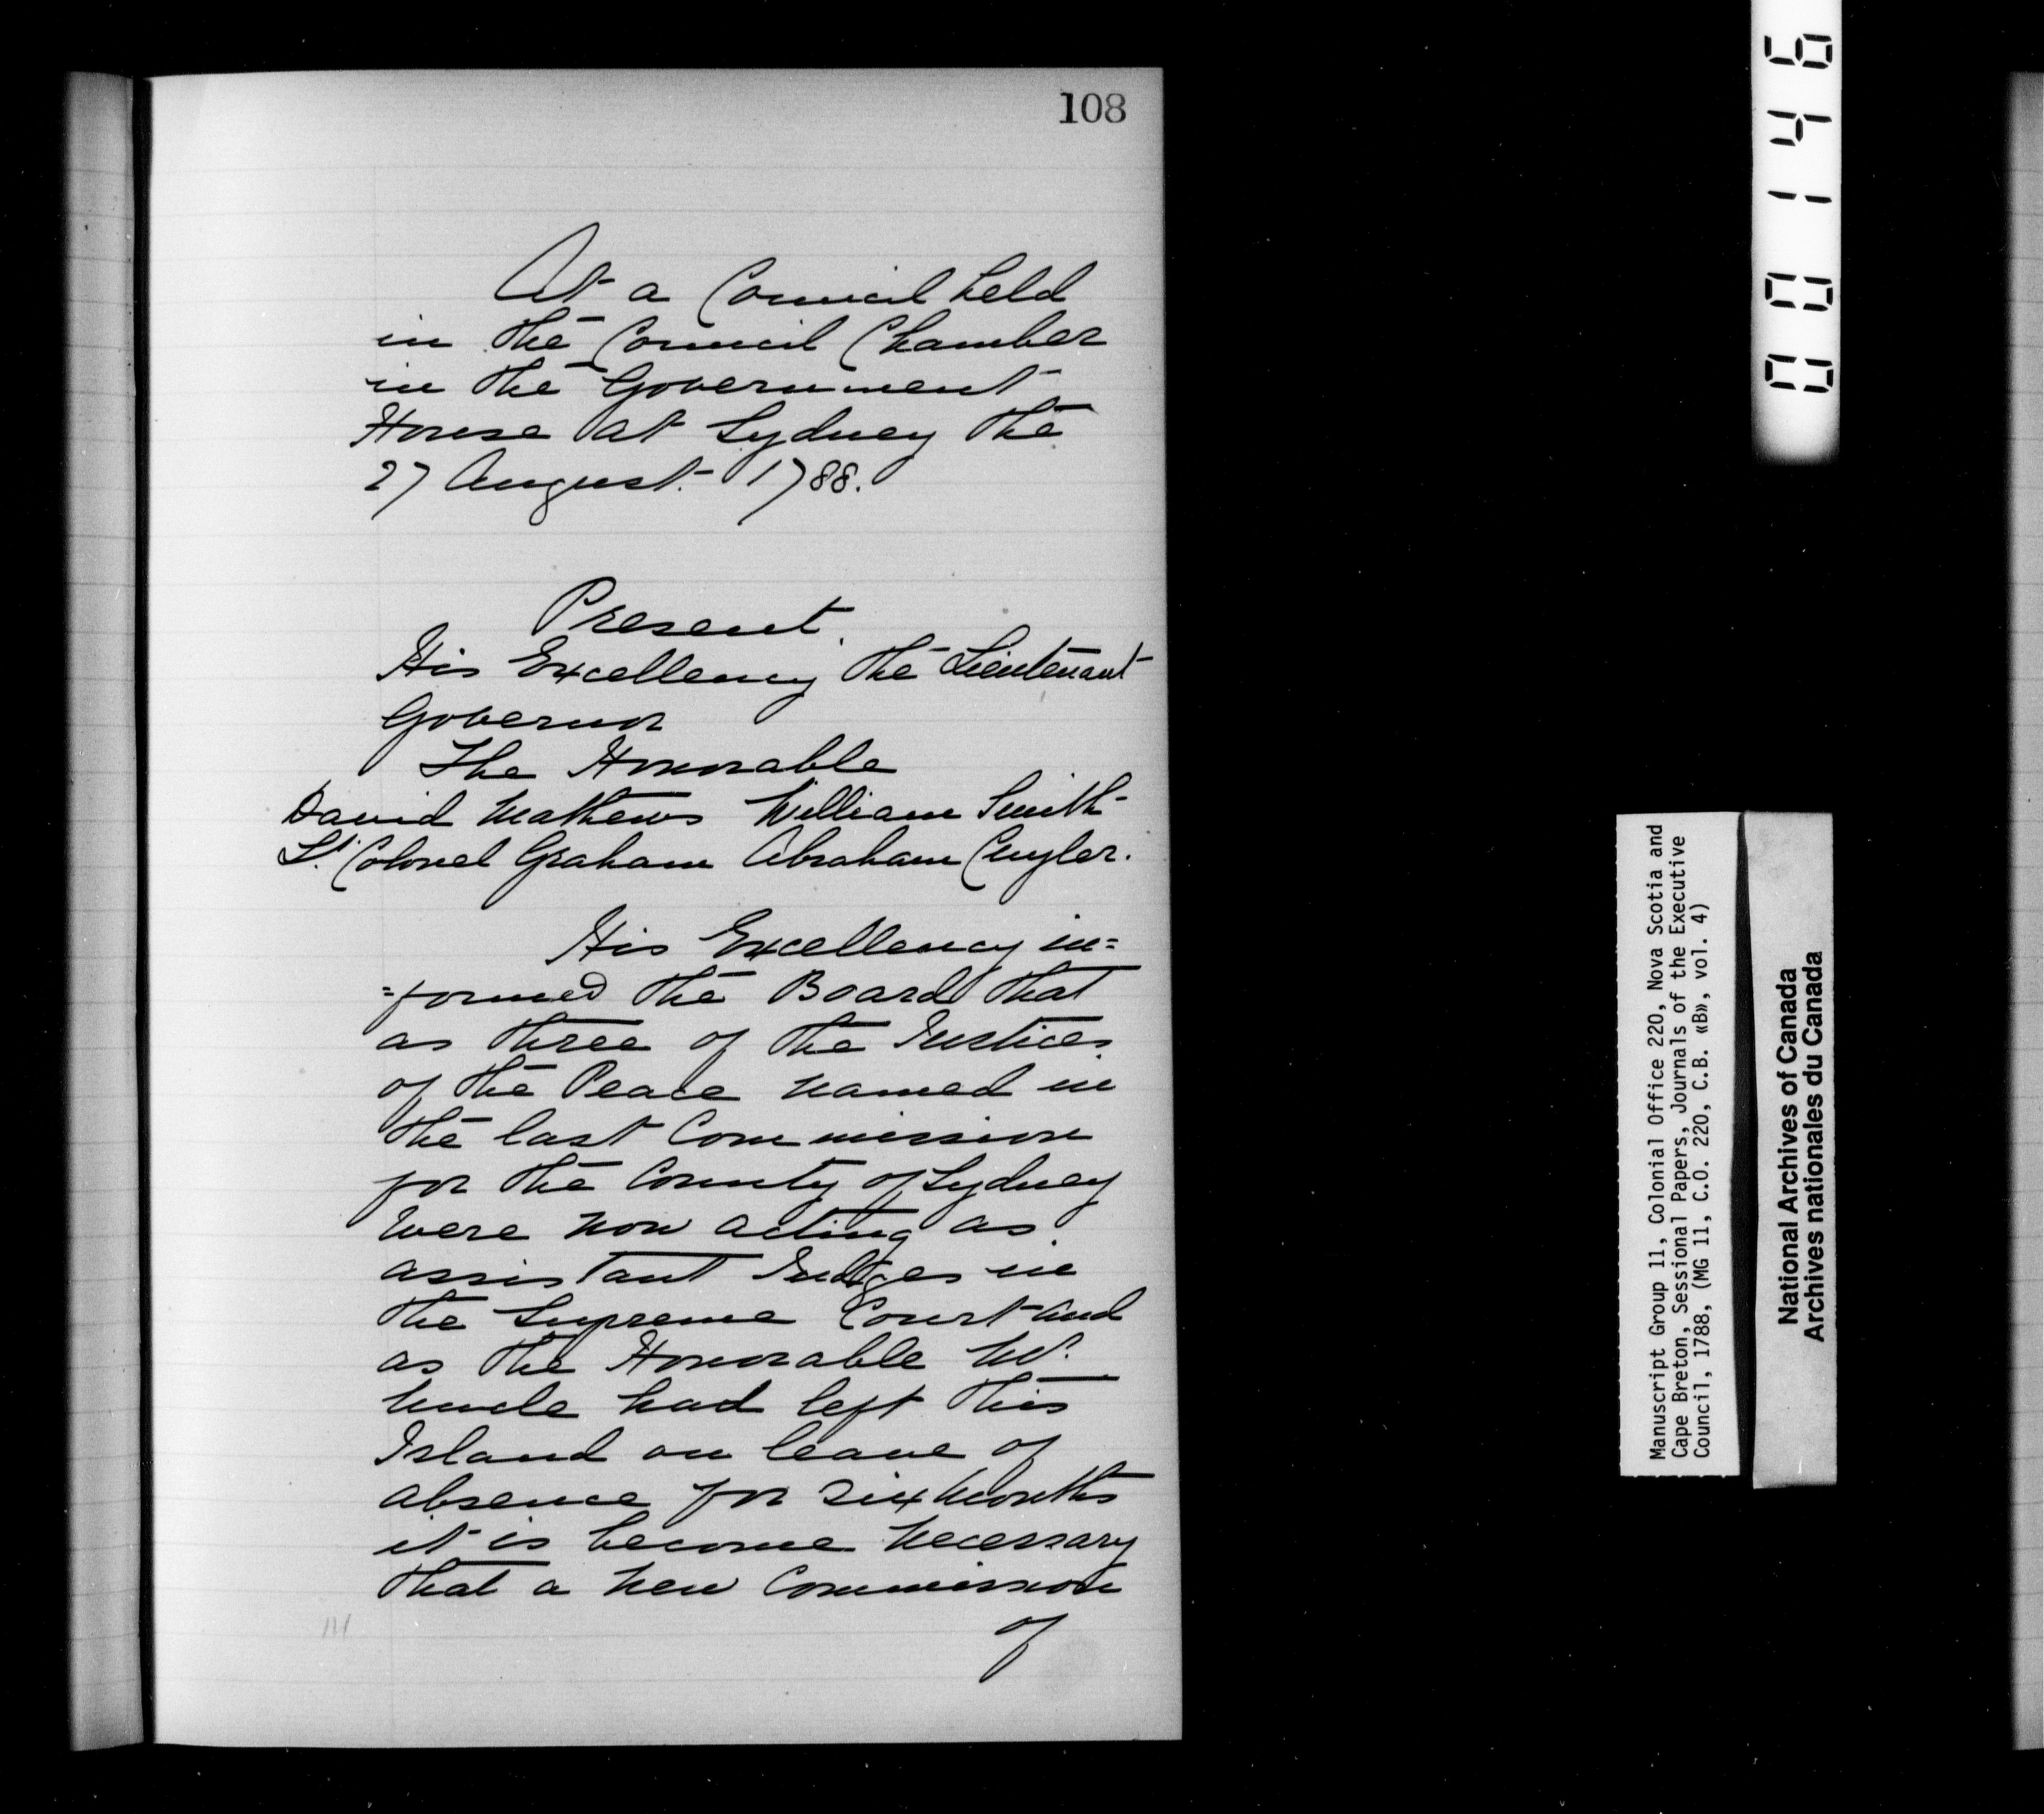 108
At a Council held
in the Council Chamber
in the Government
House at Sydney the
27 August. 1788.
Present.
His Excellency the Lieutenant
Governor
The Honorable
David Mathews William Smith
Lt. Colonel Graham Abraham Cuyler.
His Excellency in=
=formed the Board that
as three of the Justices
of the Peace named in
the last Commission
for the County of Sydney
were now acting as
assistant Judges in
the Supreme Court and
as the Honorable Mr.
had left this
Island on leave of
absence for six months
it is become necessary
that a new Commission
of
000146
Manuscript Group 11, Colonial Office 220, Nova Scotia and
Cape Breton, Sessional Papers, Journals of the Executive
Council, 1788, (MG 11, C.O. 220, C.B. «B», vol. 4)
National Archives of Canada
Archives nationales du Canada